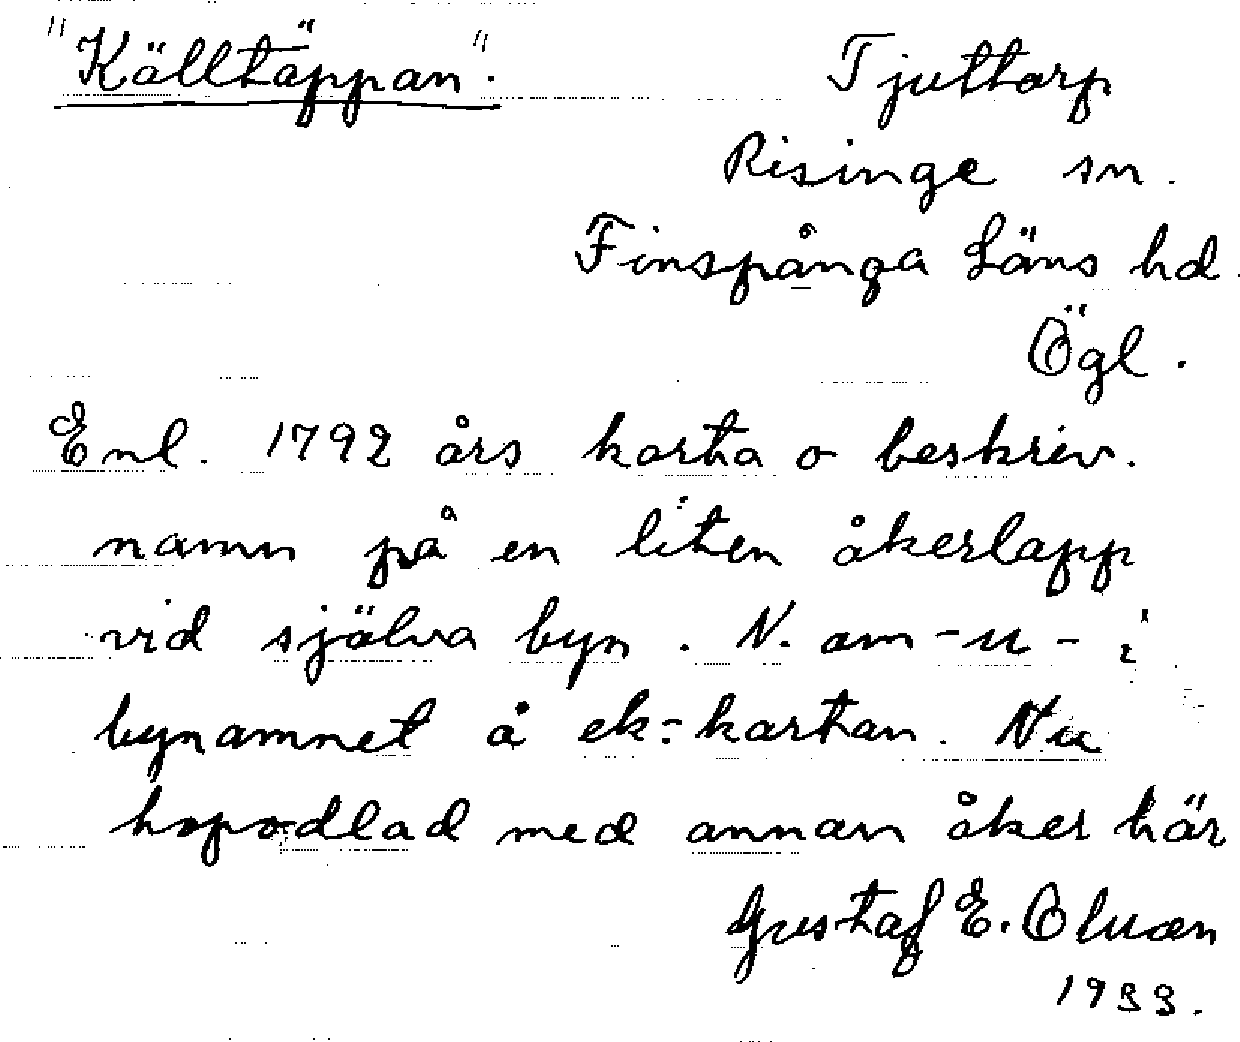 "Källtäppan". Tjuttorp
Risinge sn.
Finspånga Läns hd.
Ögl.
Enl. 1792 års karta o beskriv.
namn på en liten åkerlapp
vid själva byn. N. om -u- i
bynamnet å ek-kartan. Nu
hopodlad med annan åker här
Gustaf E.
1933.